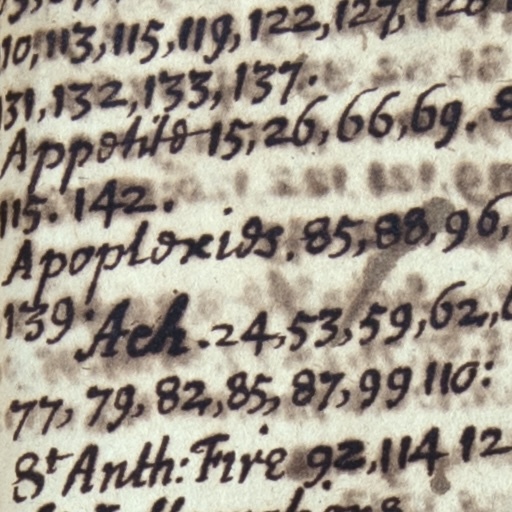 10, 113, 115, 119, 122, 127, 128
131, 132, 133, 137.
Appetite 15, 26, 66, 69.
115. 142.
Apoplexies. 85, 88, 96,
139.
Ach. 24, 53, 59, 62,
77, 79, 82, 85, 87, 99 110:
St Anth: Fire 92, 114 12